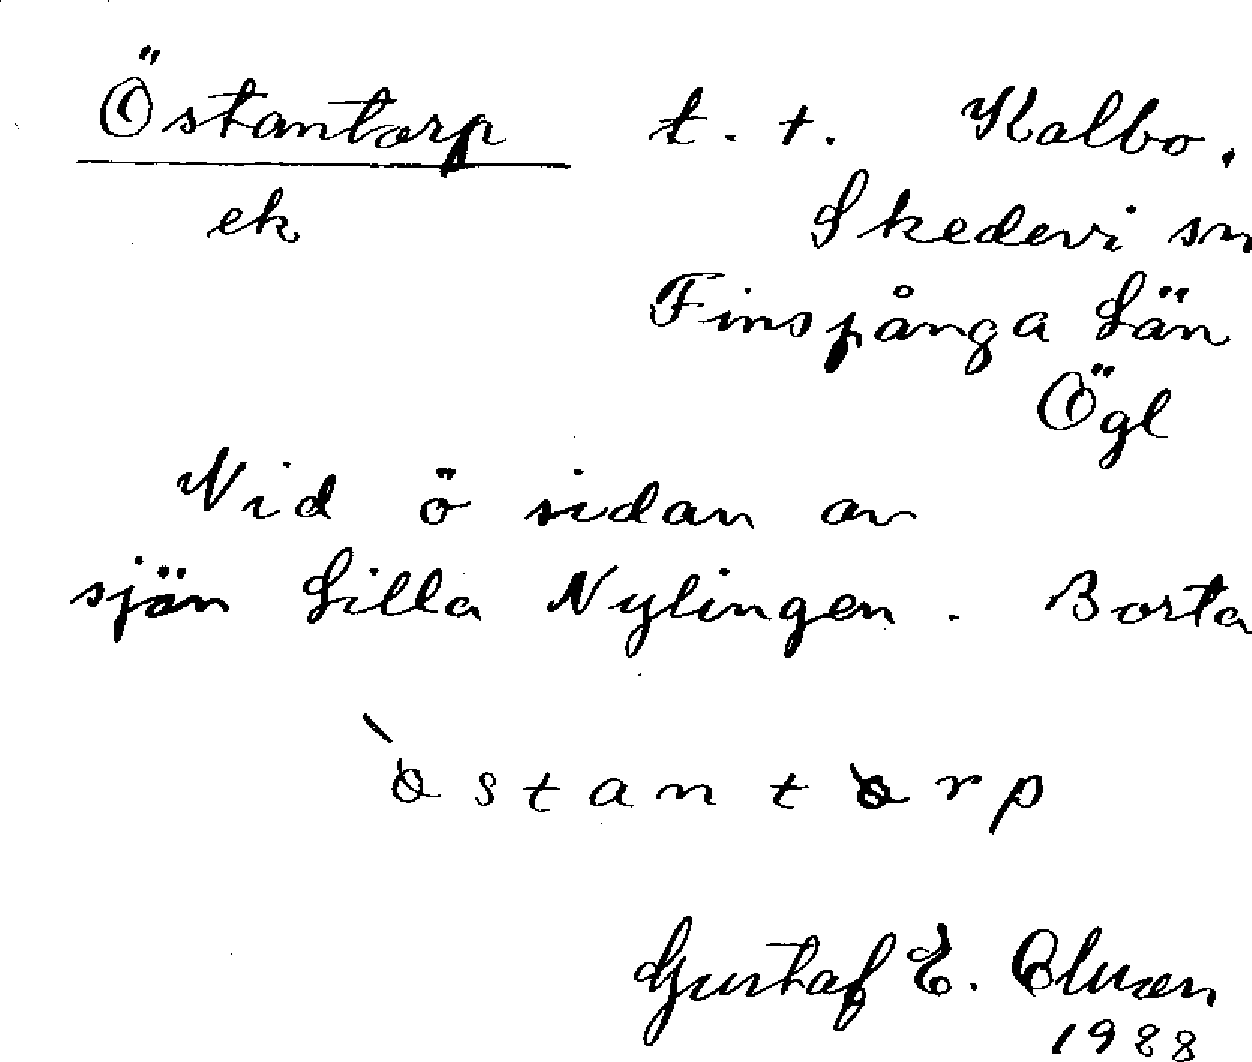 Östantorp t. t. Kalbo.
ek Skedevi sn
Finspånga Län
Ögl
Vid ö sidan av
sjön Lilla Nylingen. Borta
Gustaf E.
1928